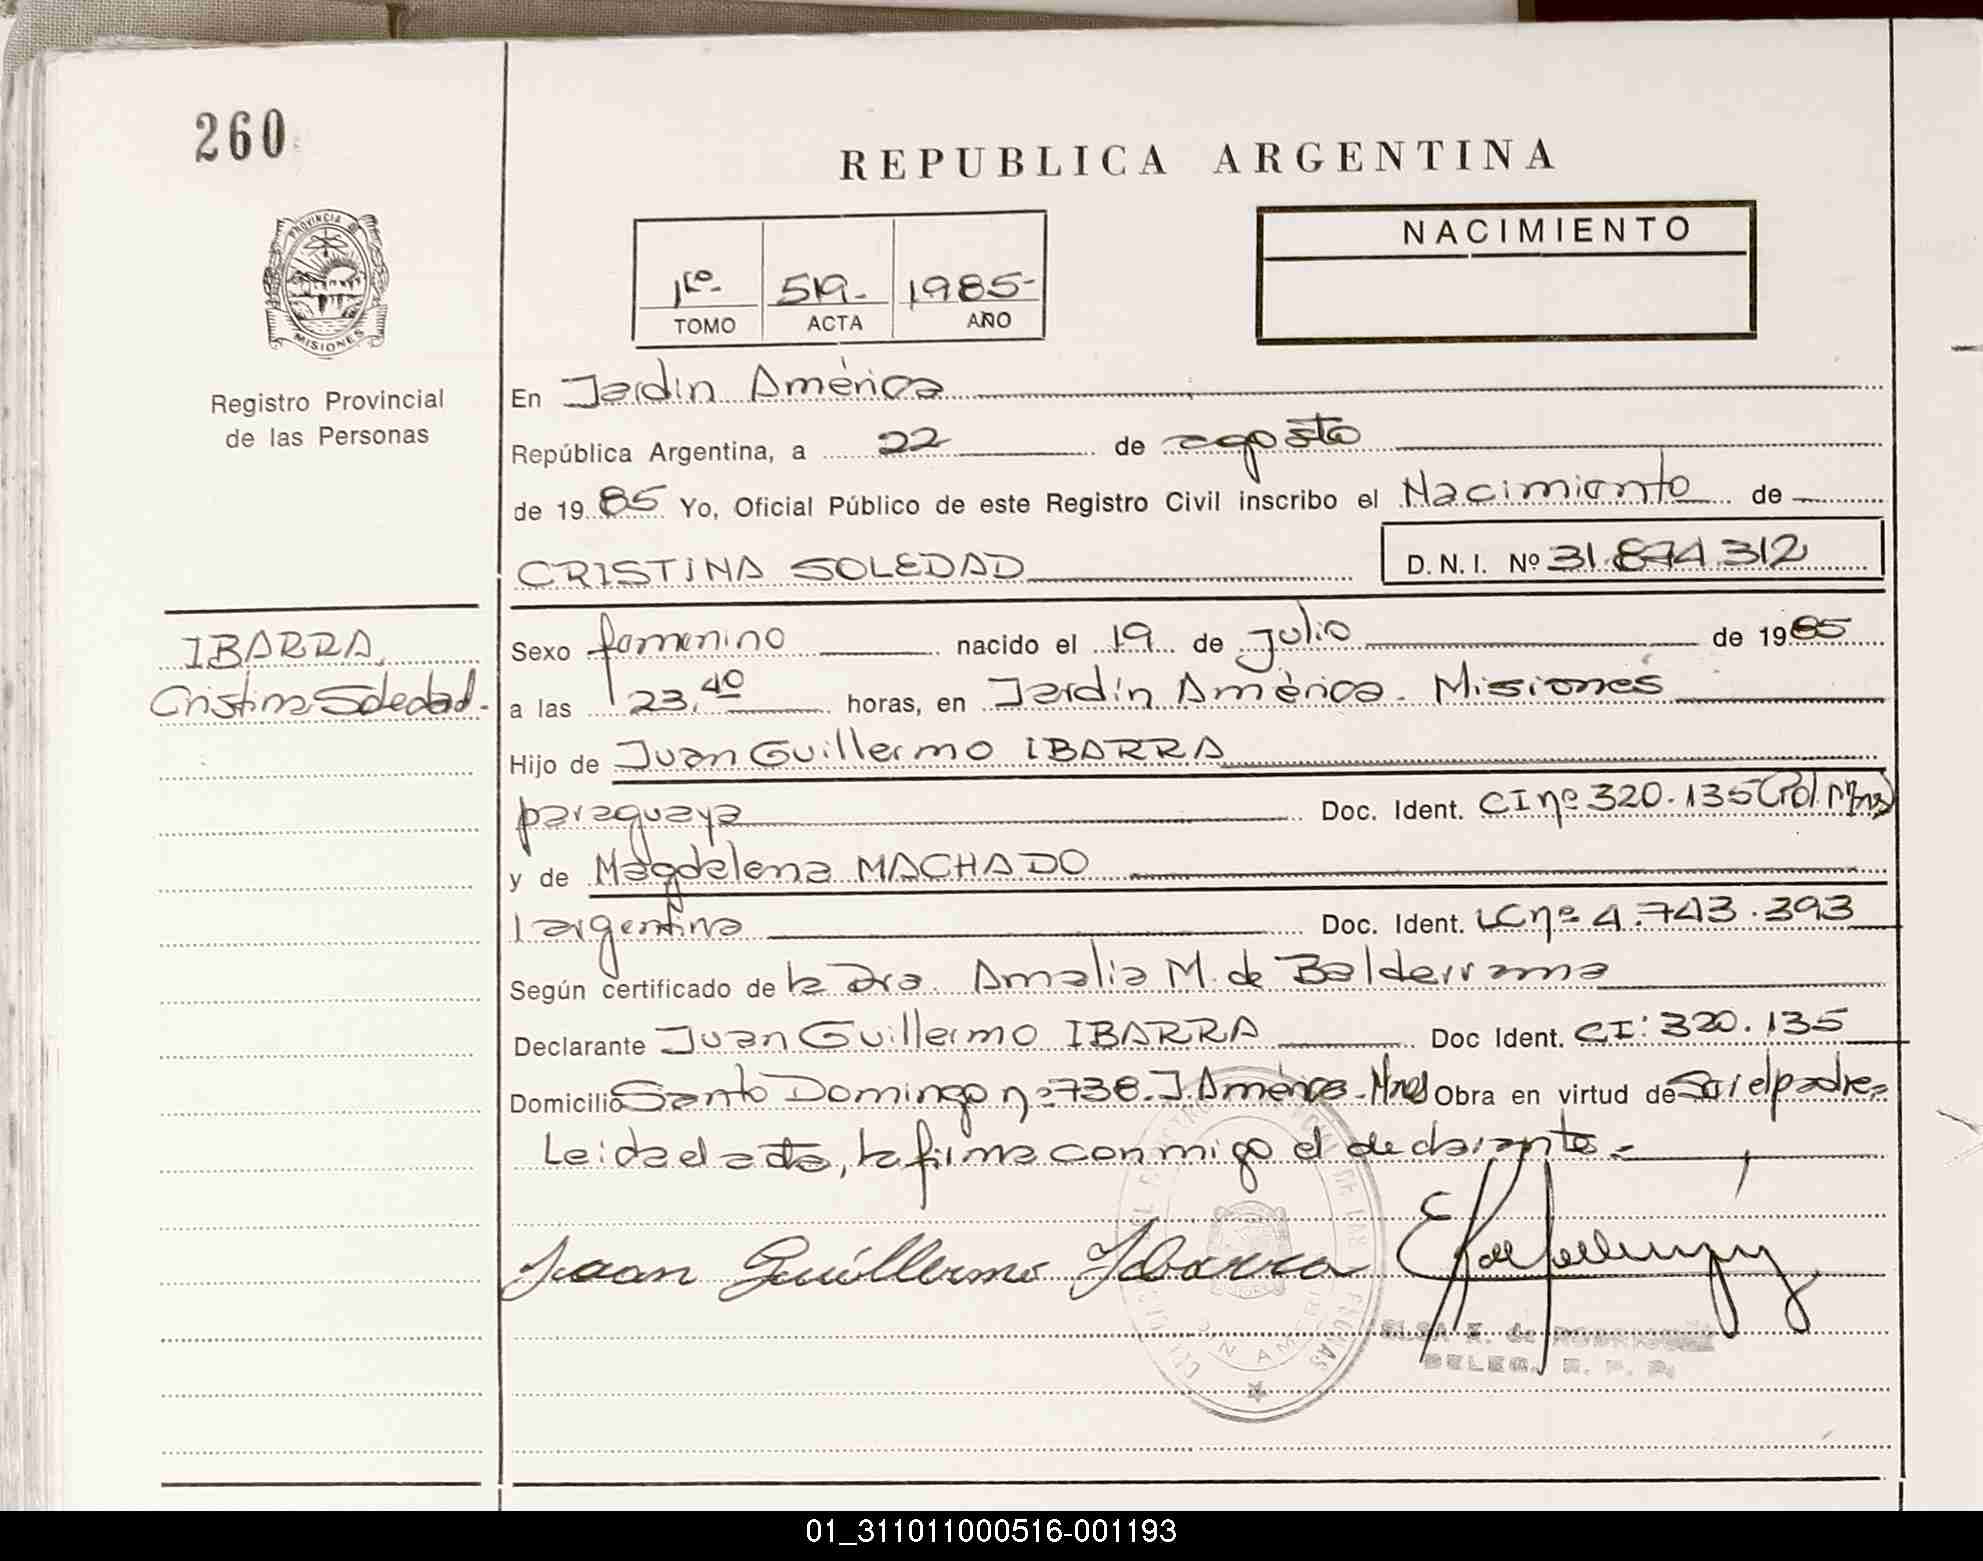 260
REPUBLICA ARGENTINA
PROVINCIA DE
MISIONES
Registro Provincial
de las Personas
1ro.- 519.- 1985-
TOMO ACTA AÑO
NACIMIENTO
En Jardín América
República Argentina, a 22 de agosto
de 1985 Yo, Oficial Público de este Registro Civil inscribo el Nacimiento de
CRISTINA SOLEDAD D.N.I. Nº 31.874.312
IBARRA,
Cristina Soledad.-
Sexo femenino nacido el 19 de julio de 1985
a las 23,40 horas, en Jardín América. Misiones
Hijo de Juan Guillermo IBARRA
paraguaya Doc. Ident. CI nº 320.135 (Pol Mnes)
y de Magdalena MACHADO
argentina Doc. Ident. LC nº 4.743.393
Según certificado de la Dra. Amalia M. de Balderrama
Declarante Juan Guillermo IBARRA Doc Ident. CI: 320.135
Domicilio Santo Domingo nº 738. J. América. Mnes Obra en virtud de Ser el padre.
Leída el acta, la firma conmigo el declarante.-
Juan Guillermo Ybarra
ELSA K. de RODRIGUEZ
DELEG. R. P. P.
01_311011000516-001193